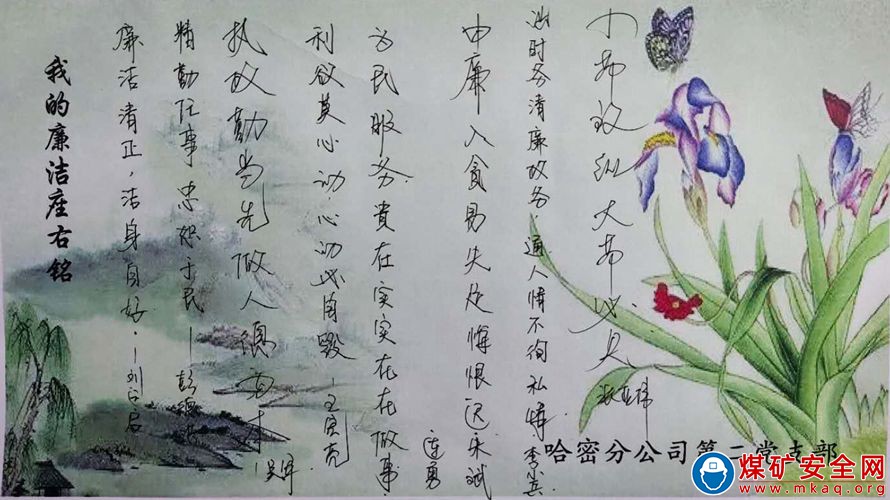 我的廉洁座右铭
廉洁清正，洁身自好.—刘
精勤任事 忠恕于民 —彭
执政勤当先 做人德为本 —吴军
利欲莫心动，心动必自毁，—王宾亮
为民服务贵在实实在在做事
由廉入贪易 失足悔恨迟 连勇
治时务清廉政务 通人情不徇私情 李
小节放纵 大节必
哈密分公司第二党支部
煤矿安全网
www.mkaq.org